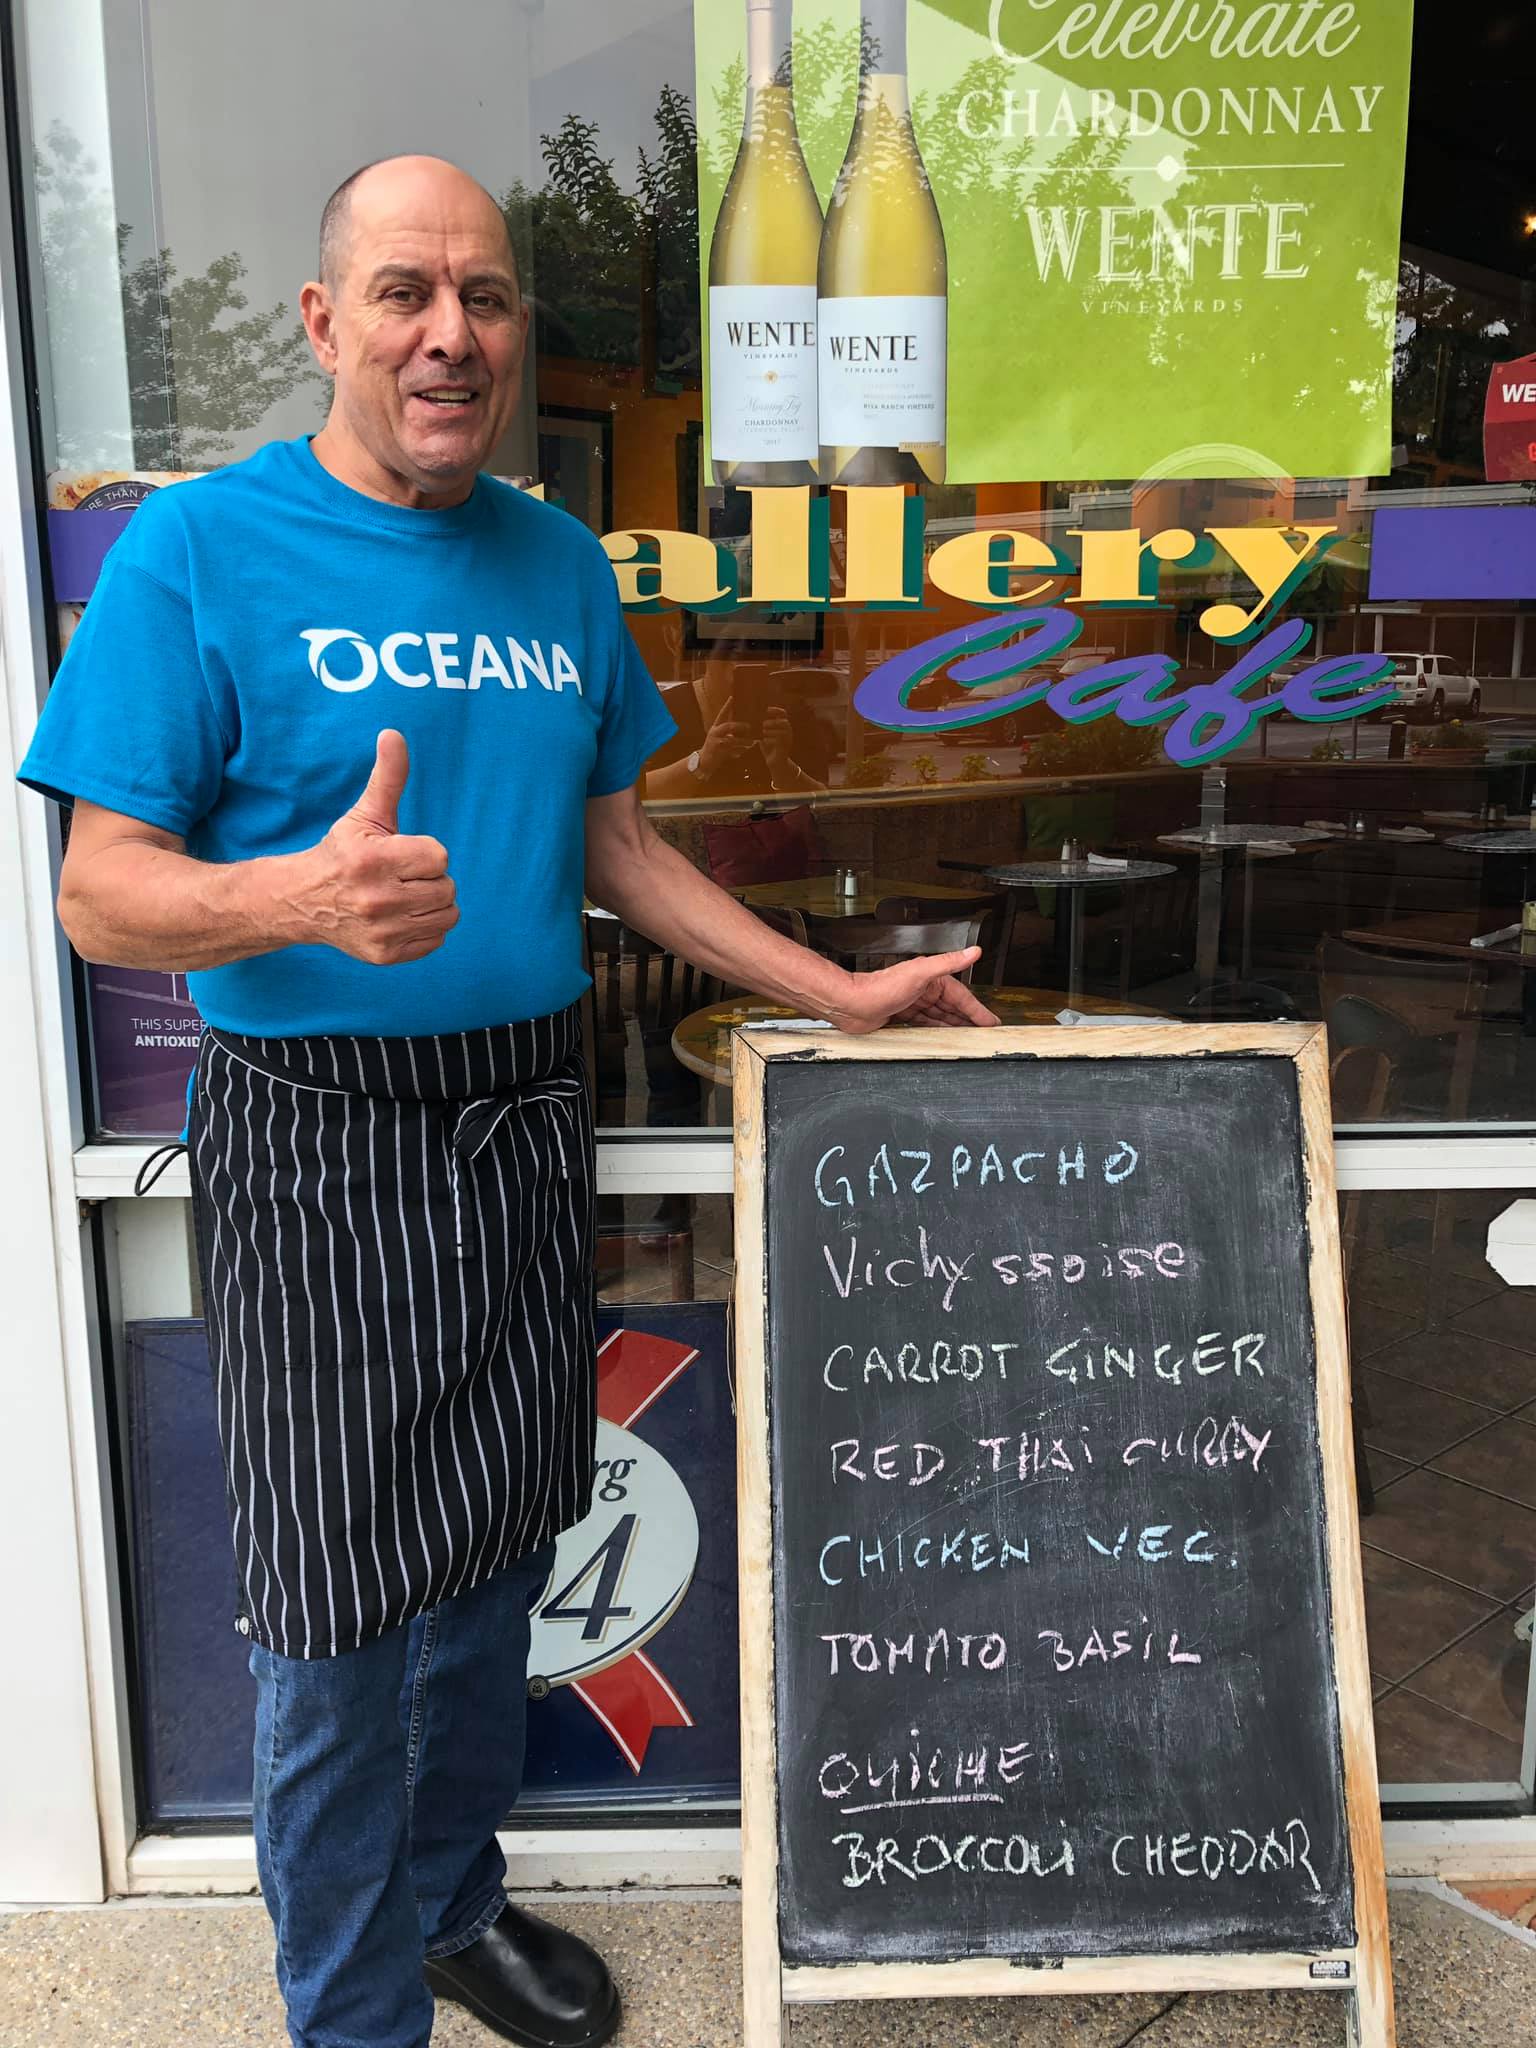 Celebrate
CHARDONNAY
WENTE
VINEYARDS
WENTE
VINEYARDS
Morning Fog
CHARDONNAY
WENTE
VINEYARDS
RIVA RANCH VINEYARD
WE
allery
Cafe
RE THAN A
OCEANA
THIS SUPE
ANTIOXID
rg
04
GAZPACHO
Vichyssoise
CARROT GINGER
RED THAi CURRY
CHICKEN VEG.
TOMATO BASiL
QUiCHE
BROCCOLi CHEDDAR
AARCO